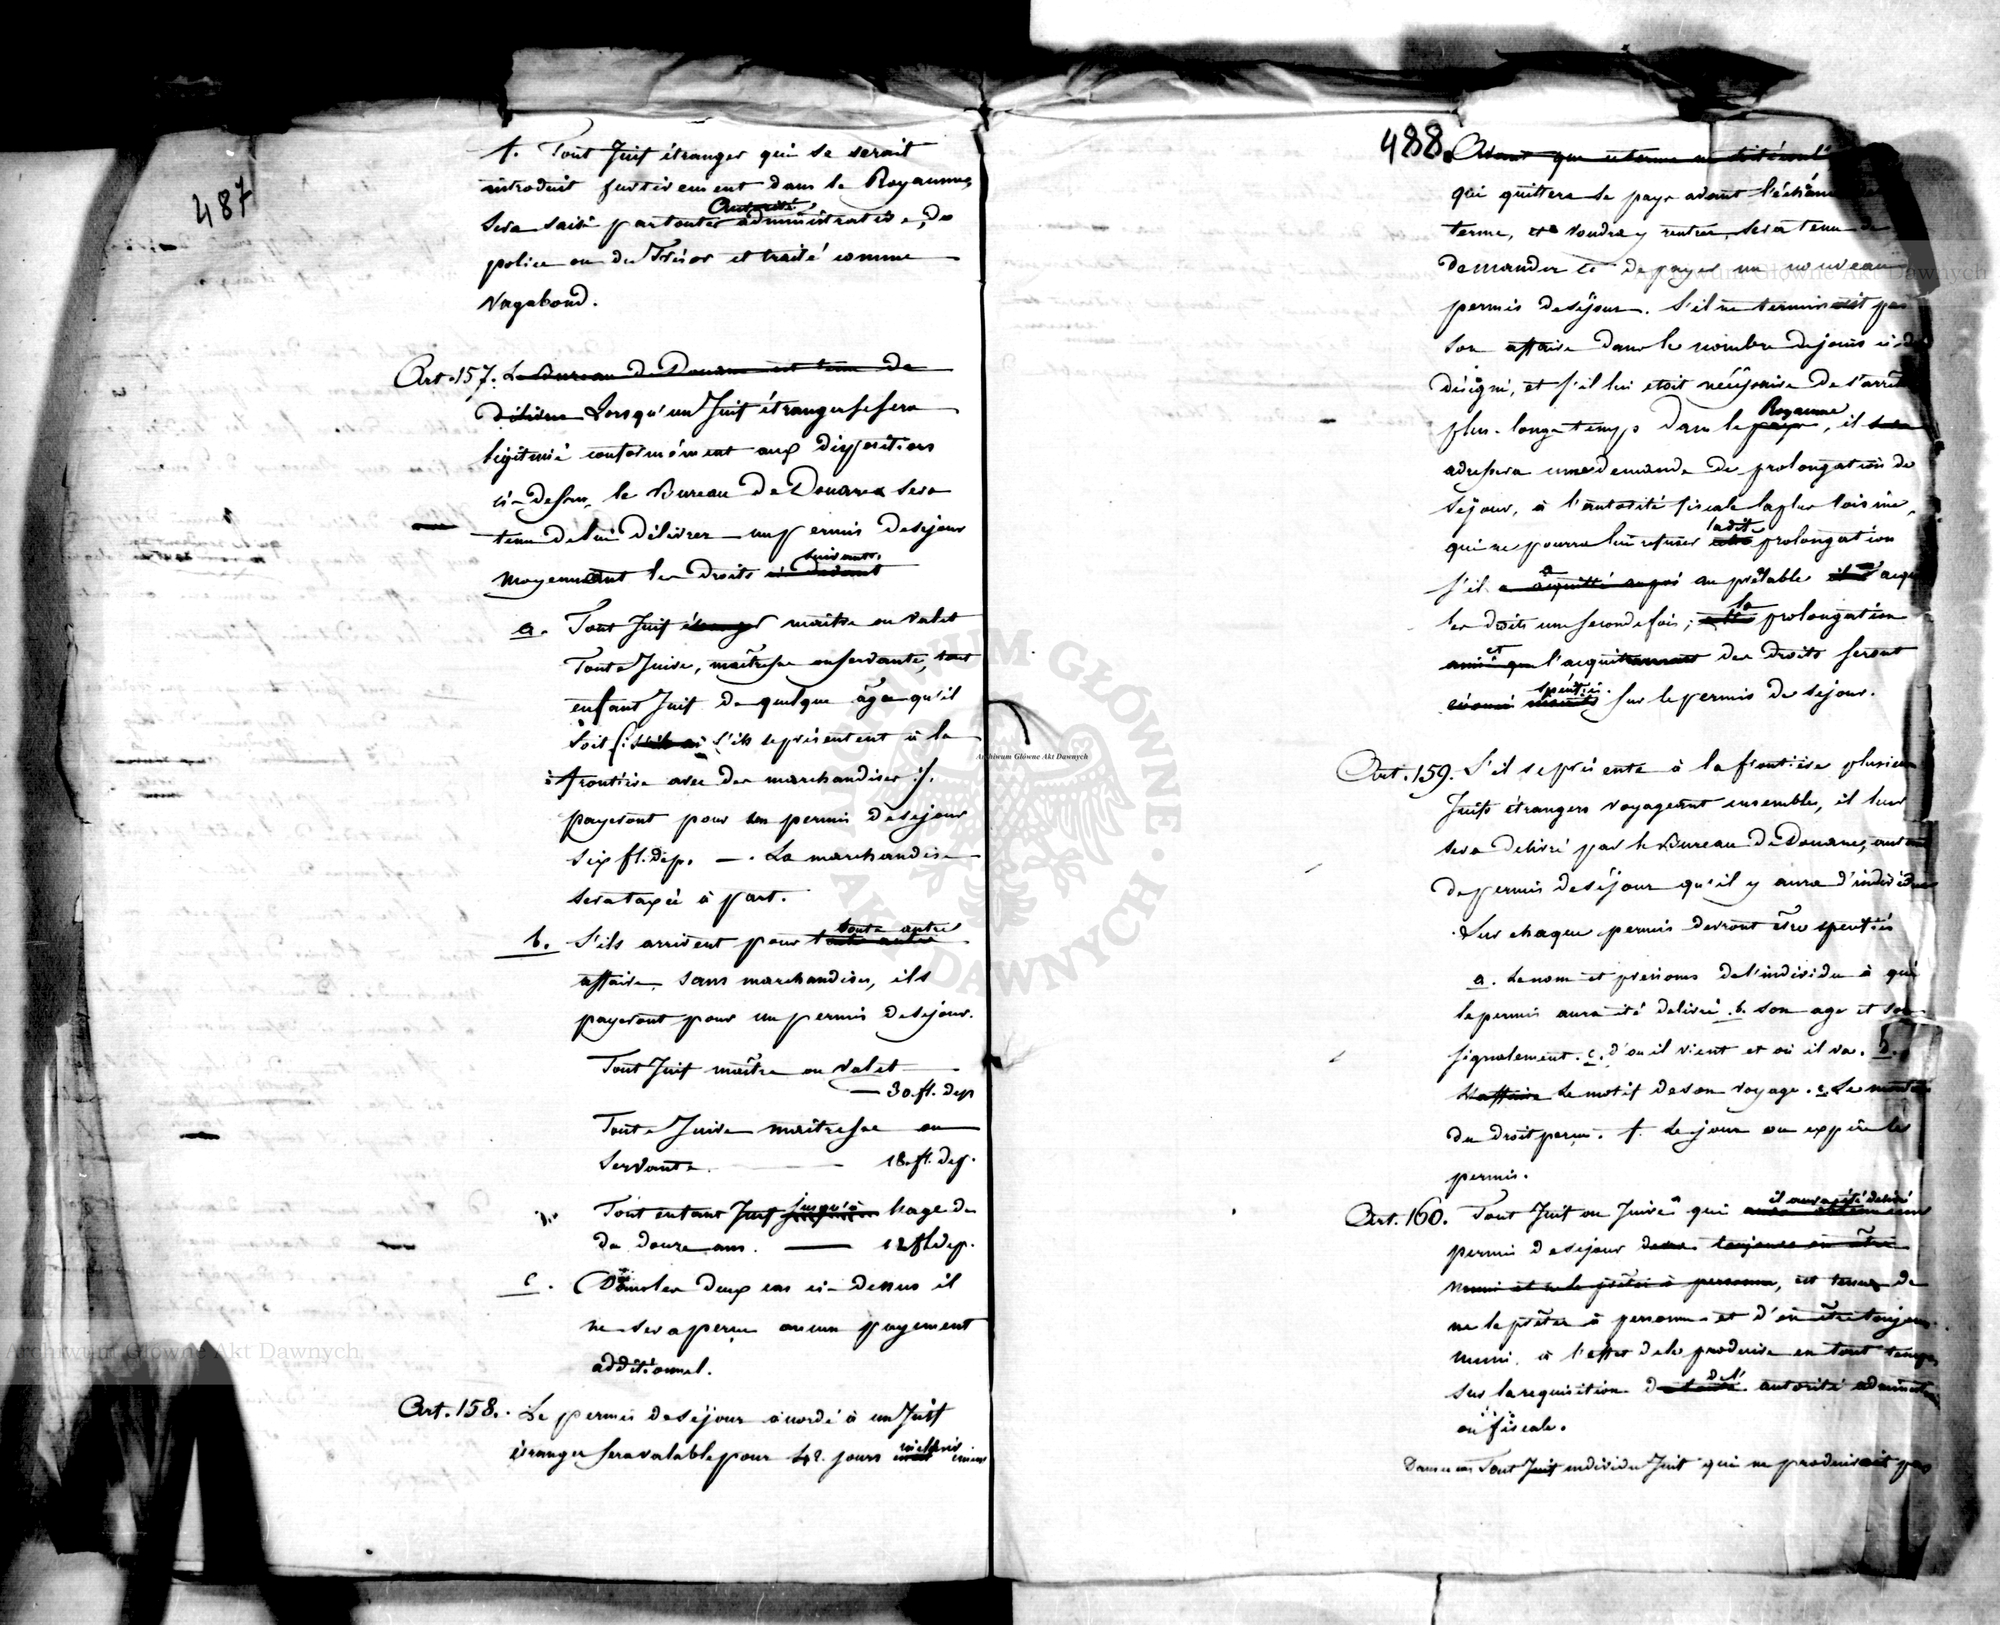 487
f. Tout Juif étranger qui se serait
introduit furtivement dans le Royaume,
sera saisi par toutes Autorités administrative, de
police ou du Trésor et traité comme
Vagabond.
Art. 157. Le Bureau de Douane est tenu de
délivrer Lorsqu'un Juif étranger se sera
légitimé conformément aux dispositions
ci-dessus, le Bureau de Douanes sera
tenu de lui délivrer un permis de sejour
moyennant les droits ci-devant suivants.
a. Tout Juif étranger maître ou valet
Toute Juive, maîtresse ou servante, tout
enfant Juif de quelque âge qu'il
soit, s'ils se présentent à la
frontière avec des marchandises
payeront pour un permis de sejour
six fl. dep. —. La marchandise
sera taxée à part.
b. S'ils arrivent pour toute autre toute autre
affaire, sans marchandises, ils
payeront pour un permis de sejour.
Tout Juif maître ou valet
— 30. fl. dep
Toute Juive maîtresse ou
servante. — 18. fl. dep.
Tout enfant Juif jusqu'à l'age de
de douze ans. — 12 fl. dep.
c. Dans les deux cas ci-dessus il
ne sera perçu aucun payement
additionnel.
Art. 158. Le permis de séjour accordé à un Juif
étranger sera valable pour 42. jours
488.
Avant que ce terme ne soit écoulé
qui quittera le pays avant l'échéance
terme, et voudra y rentrer, sera tenu de
demander et de payer un nouveau
permis de séjour. S'il ne terminait pas
son affaire dans le nombre de jours ci-des
désigné, et s'il lui etoit nécéssaire de s'arrêter
plus longs temps dans le pays Royaume, il
adressera une demande de prolongation de
séjour, à l'autorité fiscale la plus voisine,
qui ne pourra lui refuser ladite prolongation
s'il a acquitté au préalable
les droits une seconde fois; la prolongation
ainsi que et l'acquit des droits seront
spécifiés sur le permis de séjour.
Art. 159. S'il se présente à la frontière plusieurs
Juifs étrangers voyageant ensembles, il leur
sera delivré par le Bureau de Douane, autant
de permis de séjour qu'il y aura d'individus
Sur chaque permis devront être spécifiés
a. Le nom et prenoms de l'individu à qui
le permis aura été delivré. b. son age et son
signalement. c. d'ou il vient et où il va. d.
L'affaire Le motif de son voyage. e. Le montant
du droit perçu. f. Le jour ou expire le
permis.
Art. 160. Tout Juif ou Juive à qui il aura été delivré
permis de sejour devra toujours en être
muni et ne le prêter à personne, est tenu de
ne le prêter à personne et d'en être toujours
muni, à l'effet de le produire en tout temps
sur la requisition de l'autorité administrative
ou fiscale.
Tout Juif individu Juif qui ne produirait pas
Archiwum Główne Akt Dawnych